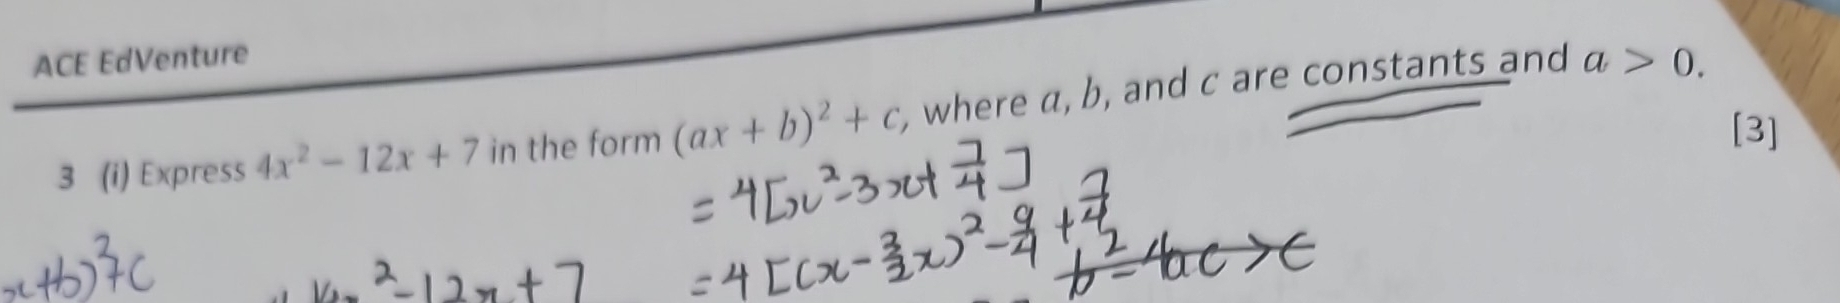 ACE EdVenture
3 (i) Express 4x² − 12x + 7 in the form (ax + b)² + c, where a, b, and c are constants and a > 0.
[3]
= 4[x² - 3x + 7/4]
= 4[(x - 3/2x)² - 9/4 + 7/4
b² - 4ac > c
x+b)²+c
4x² - 12x + 7